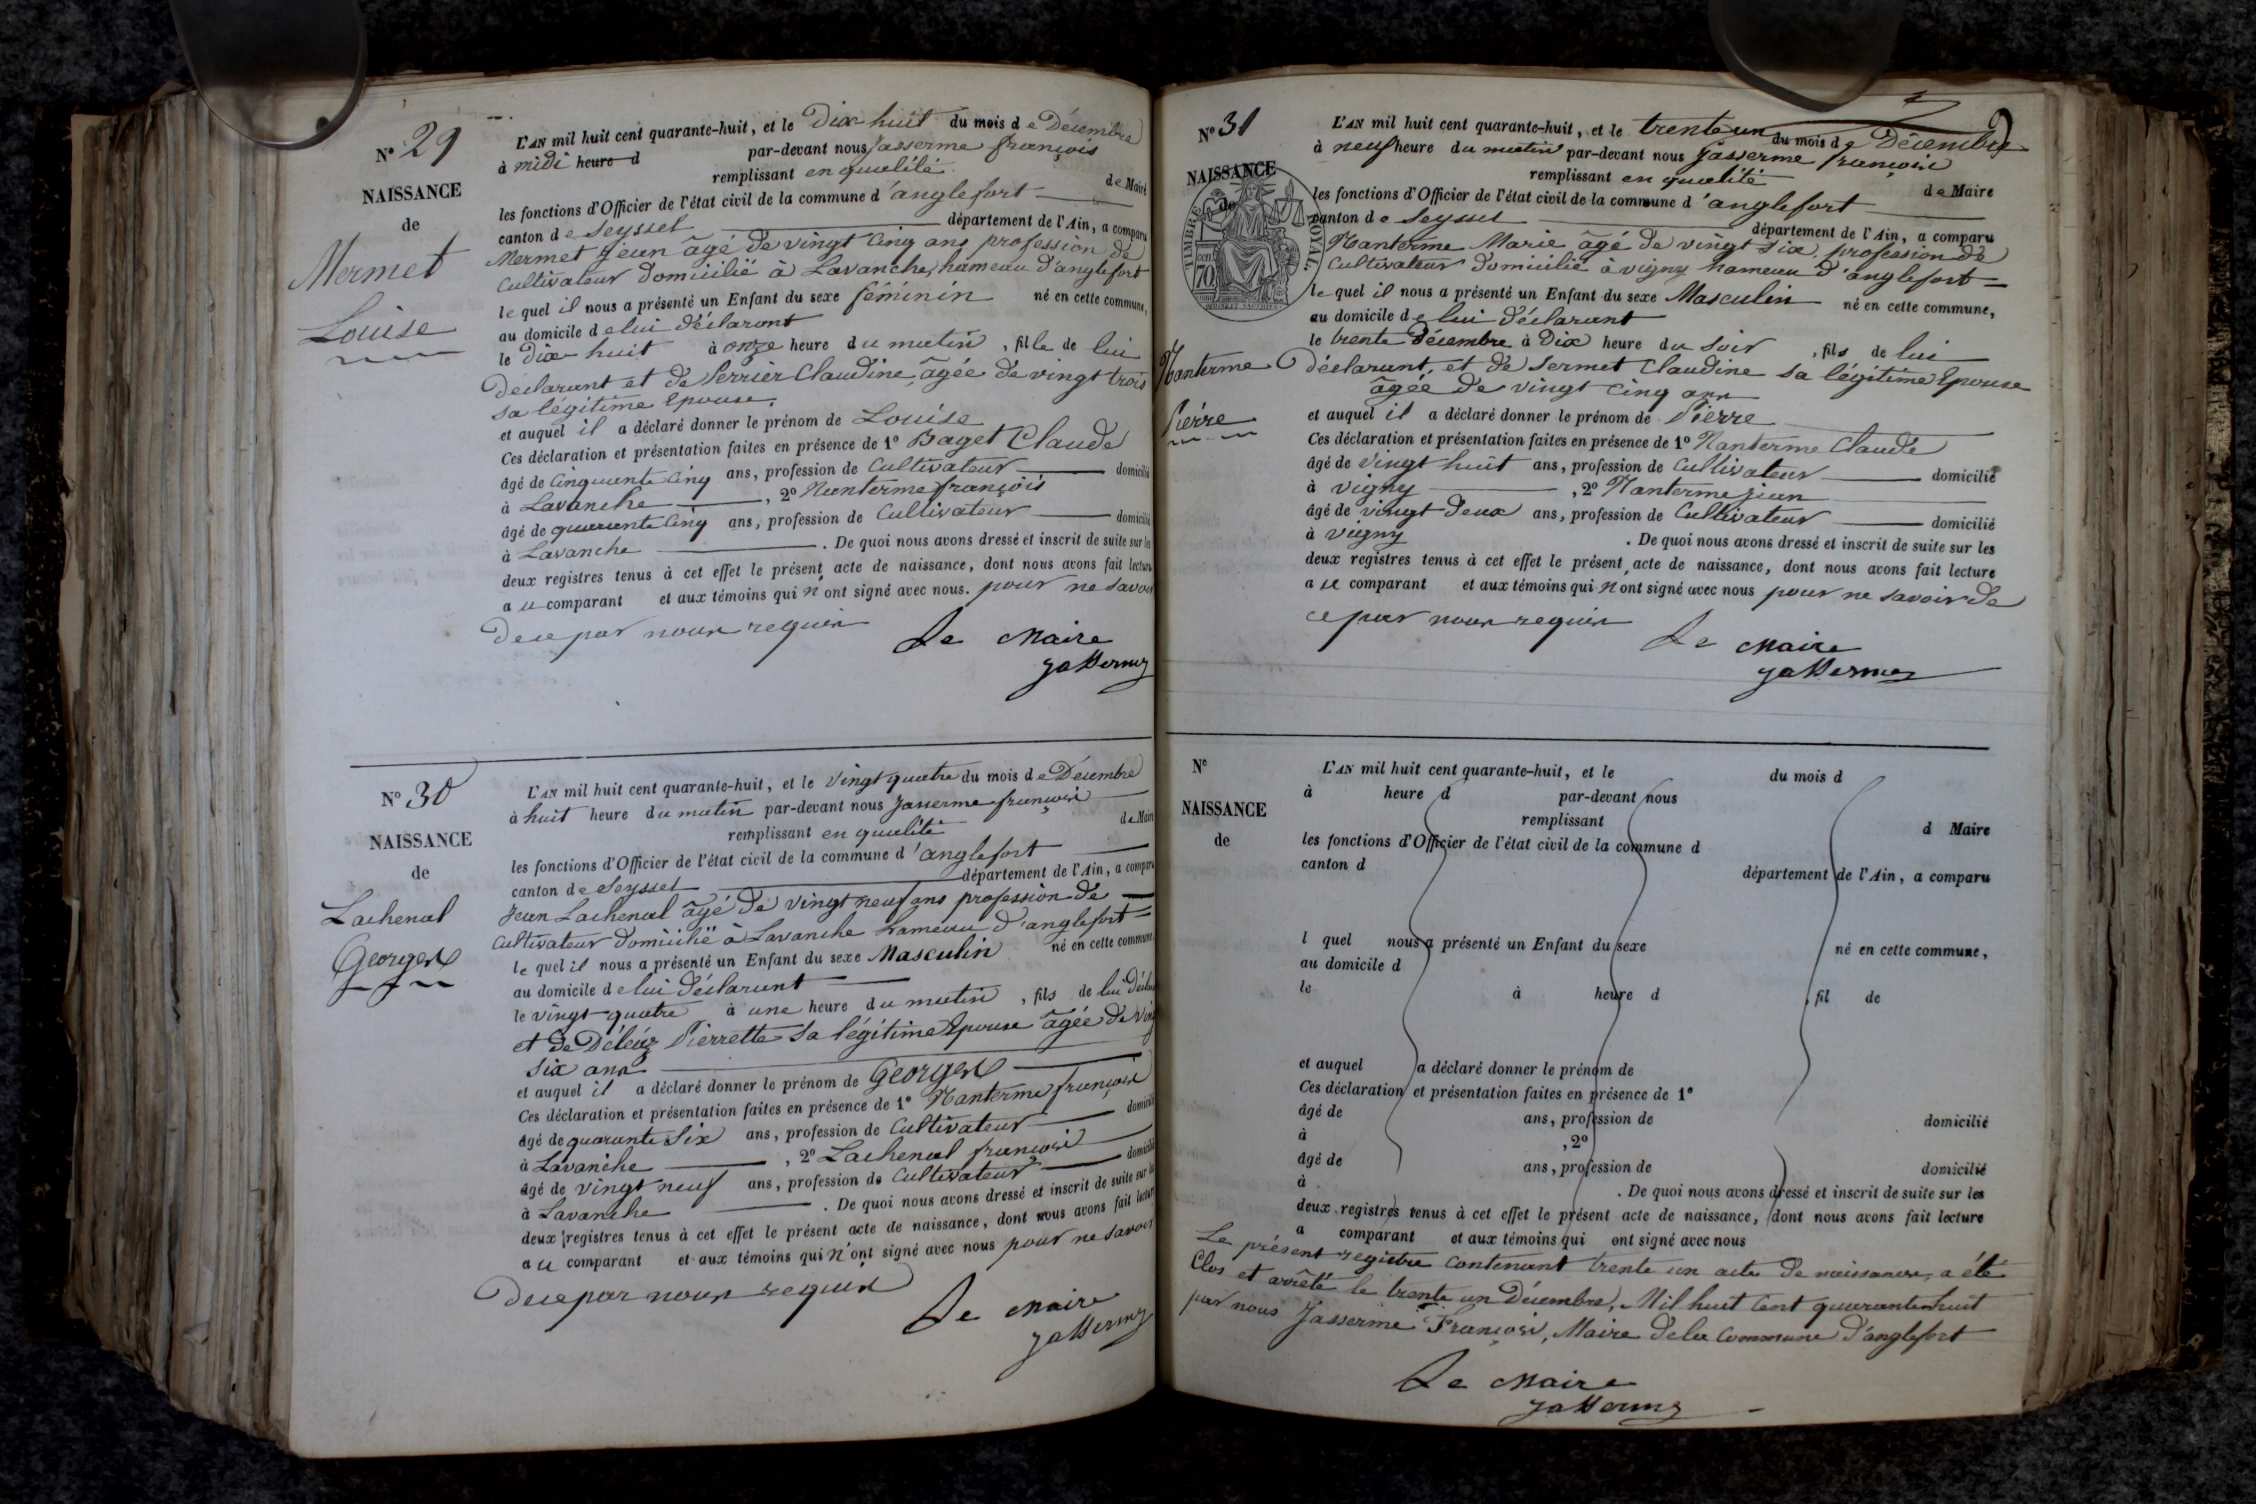 N° 29
NAISSANCE
de
Mermet
Louise
L'AN mil huit cent quarante-huit, et le Dix huit du mois de Décembre
à midi heure d par-devant nous Jasserme françois
remplissant en qualité de Maire
les fonctions d'Officier de l'état civil de la commune d'anglefort
canton de Seyssel département de l'Ain, a comparu
Mermet Jean âgé de vingt cinq ans profession de
Cultivateur domicilié à Lavanche, hameau d'anglefort
le quel il nous a présenté un Enfant du sexe féminin né en cette commune,
au domicile de lui déclarant
le Dix huit à onze heure du matin, fille de lui
Déclarant et de Perrier Claudine, âgée de vingt trois
sa légitime Epouse.
et auquel il a déclaré donner le prénom de Louise
Ces déclaration et présentation faites en présence de 1° Baget Claude
âgé de Cinquante Cinq ans, profession de Cultivateur domicilié
à Lavanche, 2° Nanterme françois
âgé de quarante Cinq ans, profession de Cultivateur domicilié
à Lavanche. De quoi nous avons dressé et inscrit de suite sur les
deux registres tenus à cet effet le présent acte de naissance, dont nous avons fait lecture
au comparant et aux témoins qui n'ont signé avec nous. pour ne savoir
de ce par nous requis
Le Maire
Jasserme
N° 30
NAISSANCE
de
Lachenal
Georges
L'AN mil huit cent quarante-huit, et le Vingt quatre du mois de Décembre
à huit heure du matin par-devant nous Jasserme françois
remplissant en qualité de Maire
les fonctions d'Officier de l'état civil de la commune d'anglefort
canton de Seyssel département de l'Ain, a comparu
Jean Lachenal âgé de vingt neuf ans profession de
Cultivateur domicilié à Lavanche hameau d'anglefort
le quel il nous a présenté un Enfant du sexe Masculin né en cette commune
au domicile de lui déclarant
le vingt quatre à une heure du matin, fils de lui
et de Déléaz Pierrette sa légitime Epouse âgée de
six ans
et auquel il a déclaré donner le prénom de Georges
Ces déclaration et présentation faites en présence de 1° Nanterme françois
âgé de quarante Six ans, profession de Cultivateur domicilié
à Lavanche, 2° Lachenal françois domicilié
âgé de vingt neuf ans, profession de Cultivateur
à Lavanche. De quoi nous avons dressé et inscrit de suite sur les
deux registres tenus à cet effet le présent acte de naissance, dont nous avons fait lecture
au comparant et aux témoins qui n'ont signé avec nous pour ne savoir
de ce par nous requis
Le Maire
Jasserme
N° 31
NAISSANCE
de
TIMBRE ROYAL
70
Nanterme
Pierre
L'AN mil huit cent quarante-huit, et le trente un du mois de Décembre
à neuf heure du matin par-devant nous Jasserme françois
remplissant en qualité de Maire
les fonctions d'Officier de l'état civil de la commune d'anglefort
canton de Seyssel département de l'Ain, a comparu
Nanterme Marie âgé de vingt six, profession de
Cultivateur domicilié à vigny hameau d'anglefort
le quel il nous a présenté un Enfant du sexe Masculin né en cette commune,
au domicile de lui déclarant
le trente Décembre à Dix heure du Soir, fils de lui
déclarant, et de Sermet Claudine sa légitime Epouse
âgée de vingt cinq ans
et auquel il a déclaré donner le prénom de Pierre
Ces déclaration et présentation faites en présence de 1° Nanterme Claude
âgé de vingt huit ans, profession de Cultivateur domicilié
à vigny, 2° Nanterme jean
âgé de vingt deux ans, profession de Cultivateur domicilié
à vigny. De quoi nous avons dressé et inscrit de suite sur les
deux registres tenus à cet effet le présent acte de naissance, dont nous avons fait lecture
au comparant et aux témoins qui n'ont signé avec nous pour ne savoir de
ce par nous requis
Le Maire
Jasserme
N°
NAISSANCE
de
L'AN mil huit cent quarante-huit, et le du mois d
à heure d par-devant nous
remplissant d Maire
les fonctions d'Officier de l'état civil de la commune d
canton d département de l'Ain, a comparu
l quel nous a présenté un Enfant du sexe né en cette commune,
au domicile d
le à heure d, fil de
et auquel a déclaré donner le prénom de
Ces déclaration et présentation faites en présence de 1°
âgé de ans, profession de domicilié
à, 2°
âgé de ans, profession de domicilié
à. De quoi nous avons dressé et inscrit de suite sur les
deux registres tenus à cet effet le présent acte de naissance, dont nous avons fait lecture
a comparant et aux témoins qui ont signé avec nous
Le présent registre contenant trente un acte de naissance, a été
Clos et arrêté le trente un Décembre, Mil huit Cent quarante huit
par nous Jasserme François, Maire de la Commune d'anglefort
Le Maire
Jasserme